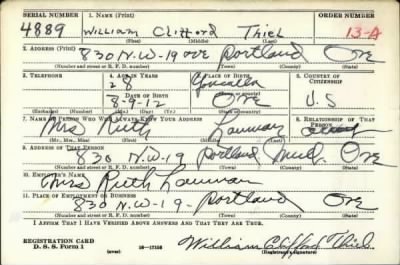 SERIAL NUMBER 1. NAME (Print) ORDER NUMBER
4889 William Clifford Thiel 13-A
(First) (Middle) (Last)
2. ADDRESS (Print)
830 N.W-19 ave Portland Ore
(Number and street or R. F. D. number) (Town) (County) (State)
3. TELEPHONE 4. AGE IN YEARS 5. PLACE OF BIRTH 6. COUNTRY OF CITIZENSHIP
28
(Town or county)
DATE OF BIRTH
8-9-12 Ore U.S
(Exchange) (Number) (Mo.) (Day) (Yr.) (State or country)
7. NAME OF PERSON WHO WILL ALWAYS KNOW YOUR ADDRESS 8. RELATIONSHIP OF THAT PERSON
Mrs Ruth
(Mr., Mrs., Miss) (First) (Middle) (Last)
9. ADDRESS OF THAT PERSON
830 N.W-19 Portland Mult. Ore
(Number and street or R. F. D. number) (Town) (County) (State)
10. EMPLOYER'S NAME
Mrs Ruth
11. PLACE OF EMPLOYMENT OR BUSINESS
830 N.W-19- Portland Ore
(Number and street or R. F. D. number) (Town) (County) (State)
I AFFIRM THAT I HAVE VERIFIED ABOVE ANSWERS AND THAT THEY ARE TRUE.
REGISTRATION CARD
D. S. S. Form 1 (over) 16-17105 William Clifford Thiel
(Registrant's signature)